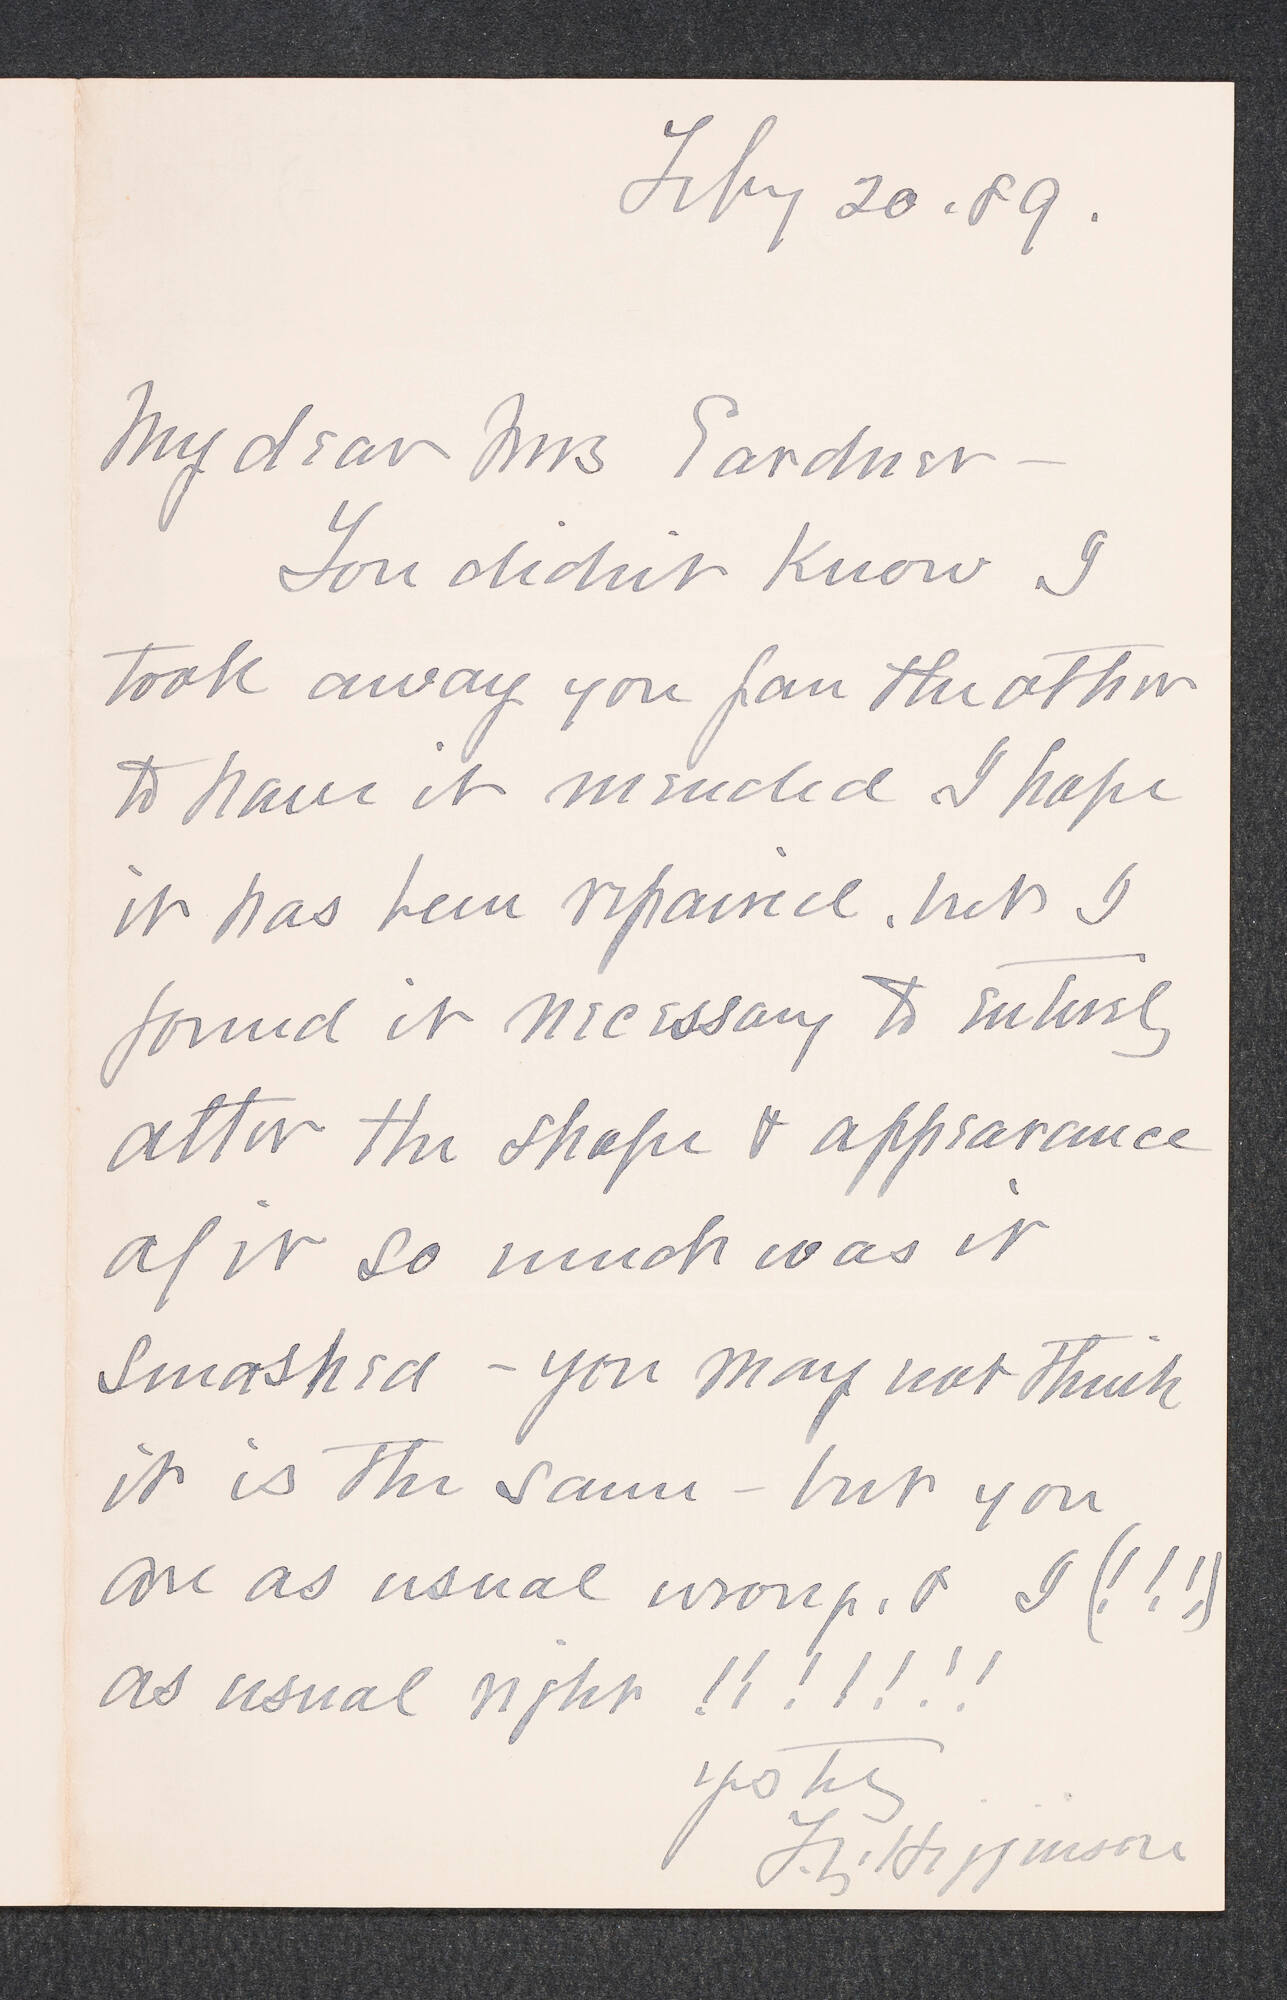 Feby 20. 89.
My dear Mrs Gardner—
You didn't know I
took away you fan the other
to have it mended I hope
it has been repaired. but I
found it necessary to entirely
alter the shape & appearance
of it so much was it
smashed – you may not think
it is the same – but you
are as usual wrong. & I (!!!)
as usual right !!!!!!!
yrs try
Higginson